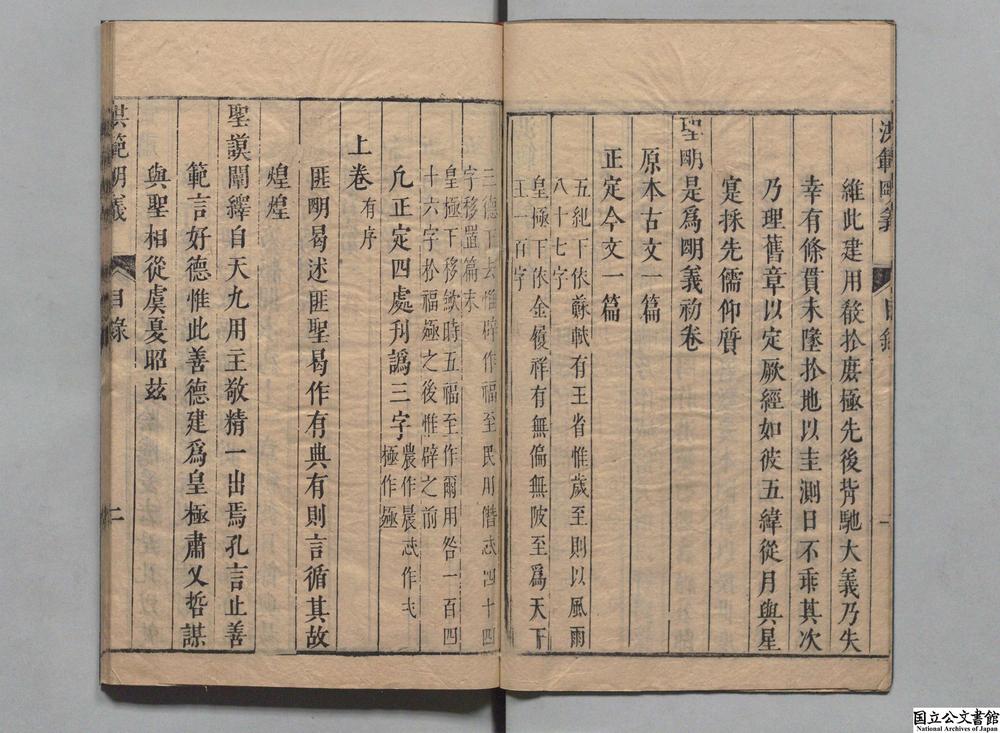 洪範明義 目錄 一
維此建用殽於庶極先後背馳大義乃失
幸有條貫未墜於地以圭測日不乖其次
乃理舊章以定厥經如彼五緯從月與星
寔採先儒仰質
聖明是為明義初卷
原本古文一篇
正定今文一篇
五紀下依蘇軾有王省惟歲至則以風雨
八十七字
皇極下依金履祥有無偏無陂至為天下
王一百字
三德下去惟辟作福至民用僭忒四十四
字移置篇末
皇極下移歛時五福至作爾用咎一百四
十六字於福極之後惟辟之前
凡正定四處刋譌三字農作晨忒作弍
極作殛
上卷有序
匪明曷述匪聖曷作有典有則言循其故
煌煌
聖謨闡繹自天九用王敬精一出焉孔言止善
範言好德惟此善德建為皇極肅乂哲謀
與聖相從虞夏昭茲
洪範明義 目錄 二
国立公文書館
National Archives of Japan